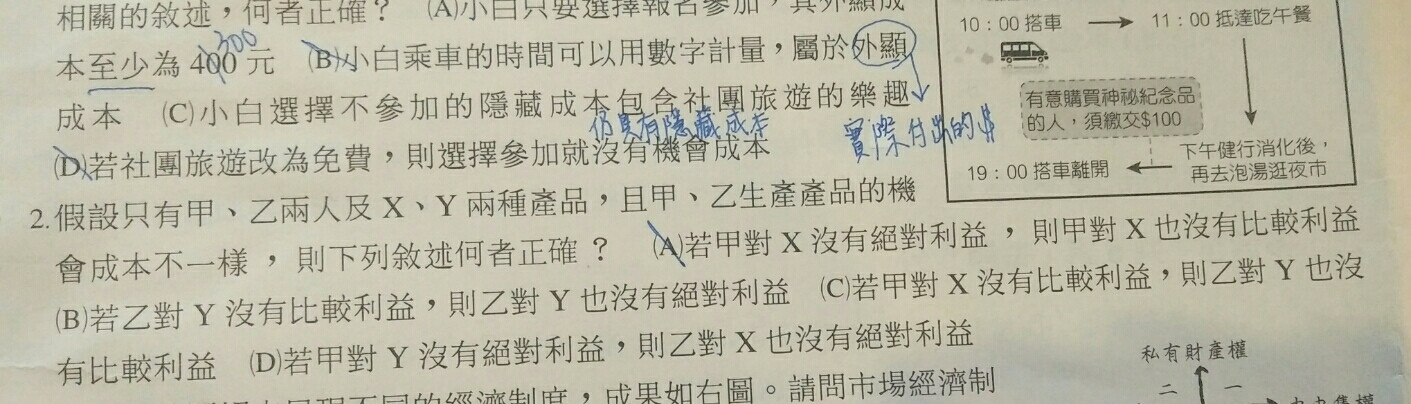 相關的敘述,何者正確? (A)小白只要選擇報名參加,其外顯成
300
本至少為400元 (B)小白乘車的時間可以用數字計量,屬於外顯
成本 (C)小白選擇不參加的隱藏成本包含社團旅遊的樂趣
仍具有隱藏成本
實際付出的$
(D)若社團旅遊改為免費,則選擇參加就沒有機會成本
10:00 搭車
11:00 抵達吃午餐
有意購買神祕紀念品
的人,須繳交$100
下午健行消化後,
再去泡湯逛夜市
19:00 搭車離開
2.假設只有甲、乙兩人及 X、Y 兩種產品,且甲、乙生產產品的機
會成本不一樣,則下列敘述何者正確? (A)若甲對 X 沒有絕對利益,則甲對 X 也沒有比較利益
(B)若乙對 Y 沒有比較利益,則乙對 Y 也沒有絕對利益 (C)若甲對 X 沒有比較利益,則乙對 Y 也沒
有比較利益 (D)若甲對 Y 沒有絕對利益,則乙對 X 也沒有絕對利益
不同的經濟制度,成果如右圖。請問市場經濟制
私有財產權
二
一